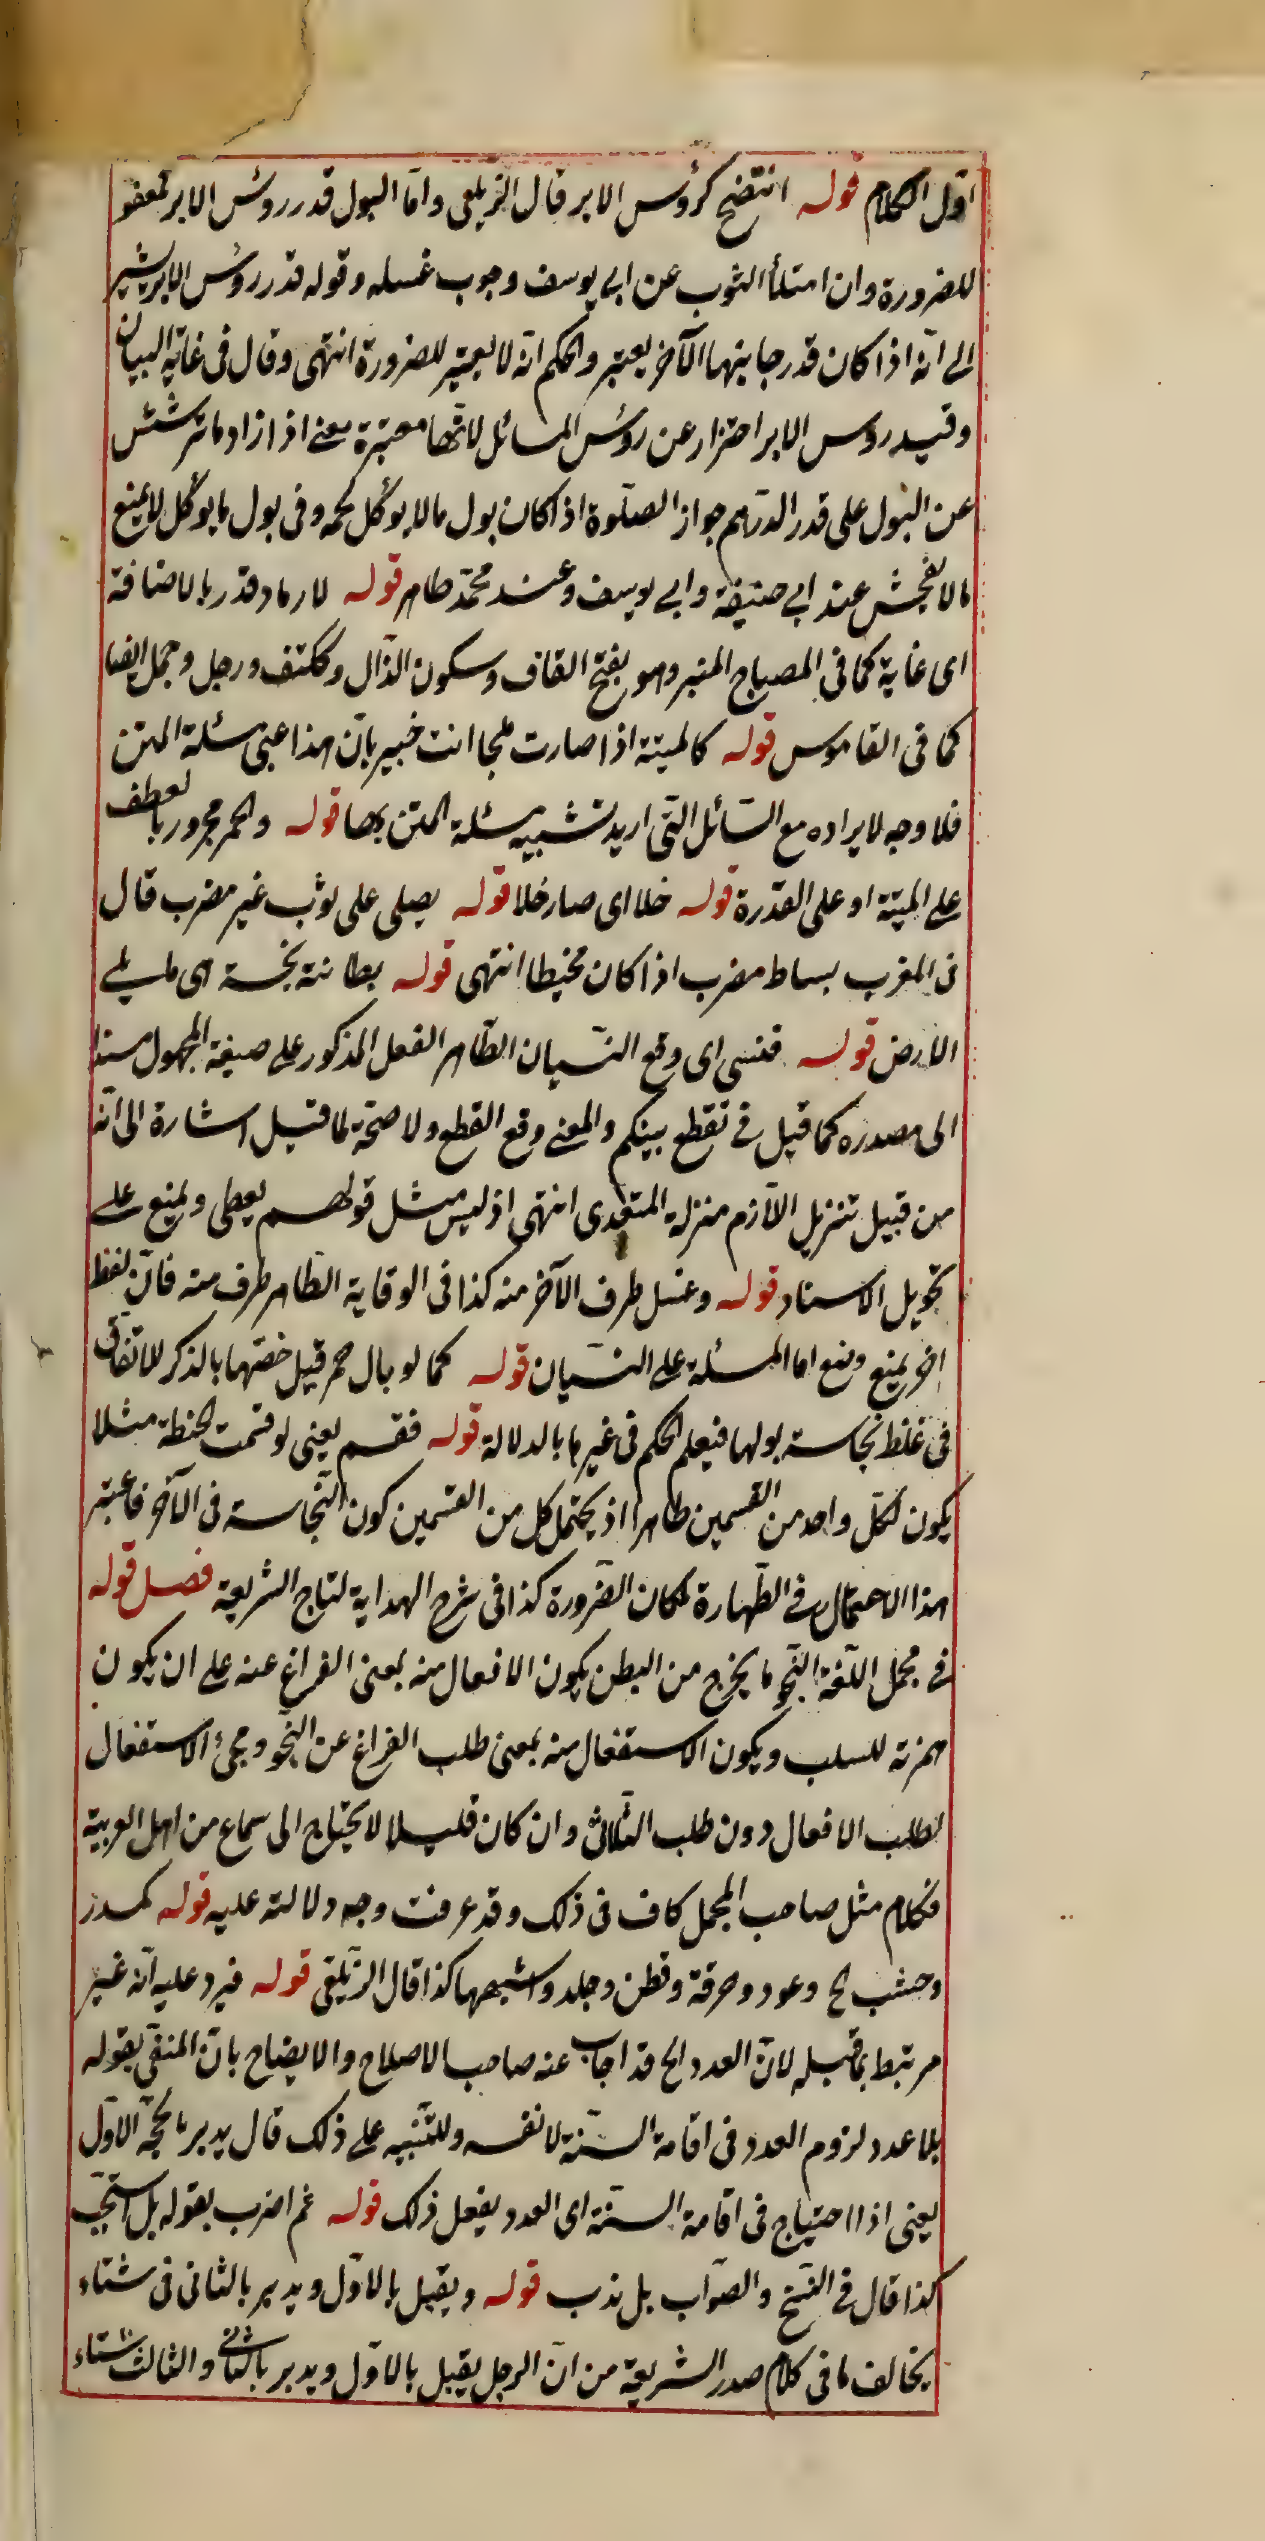 اول الكلام قوله انتضح كرؤس الابر قال الزيلعى واما البول قدر رؤس الابر فمعفو
للضرورة وان امتلأ الثوب عن ابي يوسف وجوب غسله وقوله قدر رؤس الابر يشير
الى انّه اذا كان قدر جانبها الآخر يعتبر والحكم انّه لا يعتبر للضرورة انتهى وقال فى غاية البيان
وقيد رؤس الابر احتراز عن رؤس المسائل لانّها معتبرة يعنى اذا زاد ما ترشش
عن البول على قدر الدّرهم جواز الصلوة اذا كان بول ما لا يؤكل لحمه وفى بول ما يؤكل لا يمنع
ما لا يفحش عند ابى حنيفة وابى يوسف وعند محمّد طاهر قوله لا رماد قذر بالاضافة
اى غاية كما فى المصباح المنير وهو بفتح القاف وسكون الذّال وككتف ورجل وجمل ايضا
كما فى القاموس قوله كالميتة اذا صارت ملحا انت خبير بانّ هذا عين مسئلة المتن
فلا وجه لايراده مع السّائل الّتى اريد تشبيه مسئلة المتن بها قوله والخمر مجرور بالعطف
على الميتة او على القذرة قوله خلا اى صار خلا قوله يصلى على ثوب غير مضرب قال
فى المغرب بساط مضرب اذا كان مخيطا انتهى قوله بطانته نجسة اى ما يلى
الارض قوله فنسى اى وقع النّسيان الظّاهر الفعل المذكور على صيغة المجهول مسندا
الى مصدره كما قيل فى تقطع بينكم والمعنى وقع القطع ولا صحّة لما قيل اشارة الى انّه
من قبيل تنزيل اللّازم منزلة المتعدى انتهى اذ ليس مثل قولهم يعطى ويمنع على
تحويل الاسناد قوله وغسل طرف الآخر منه كذا فى الوقاية الظّاهر طرف منه فانّ لفظ
آخر يمنع وضع اما المسئلة على النّسيان قوله كما لو بال حمر قيل خصّها بالذكر للاتّفاق
فى غلظ نجاسة بولها فيعلم الحكم فى غيرها بالدلالة قوله فقسم يعنى لو قسمت الحنطة مثلا
يكون لكلّ واحد من القسمين طاهرا اذ يحتمل كل من القسمين كون النّجاسة فى الآخر فاعتبر
هذا الاحتمال فى الطّهارة لمكان الضّرورة كذا فى شرح الهداية لتاج الشريعة فصل قوله
فى مجمل اللّغة النّجو ما يخرج من البطن يكون الافعال منه بمعنى الفراغ عنه على ان يكون
همزته للسلب ويكون الاستفعال منه بمعنى طلب الفراغ عن النّجو ومجئ الاستفعال
لطلب الافعال دون طلب الثّلاثى وان كان قليلا لا يحتاج الى سماع من اهل العربية
فكلام مثل صاحب المجمل كاف فى ذلك وقد عرفت وجه دلالته عليه قوله كمدر
وخشب الخ وعود وخرقة وقطن وجلد واشبهها كذا قال الزّيلعى قوله فيرد عليه انّه غير
مرتبط بما قبله لانّ العدد الخ قد اجاب عنه صاحب الاصلاح والايضاح بانّ المنفى بقوله
بلا عدد لزوم العدد فى اقامة السّنّة لا نفسه وللتّنبيه على ذلك قال يدبر بالحجر الاوّل
يعنى اذا احتياج فى اقامة السنّة اى العدد يفعل ذلك قوله ثم اضرب بقوله بل استحبّ
كذا قال فى النّسخ والصّواب بل ندب قوله ويقبل بالاوّل ويدبر بالثانى فى شتاء
يخالف ما فى كلام صدر الشريعة من انّ الرجل يقبل بالاوّل ويدبر بالثانى والثالث شتاء